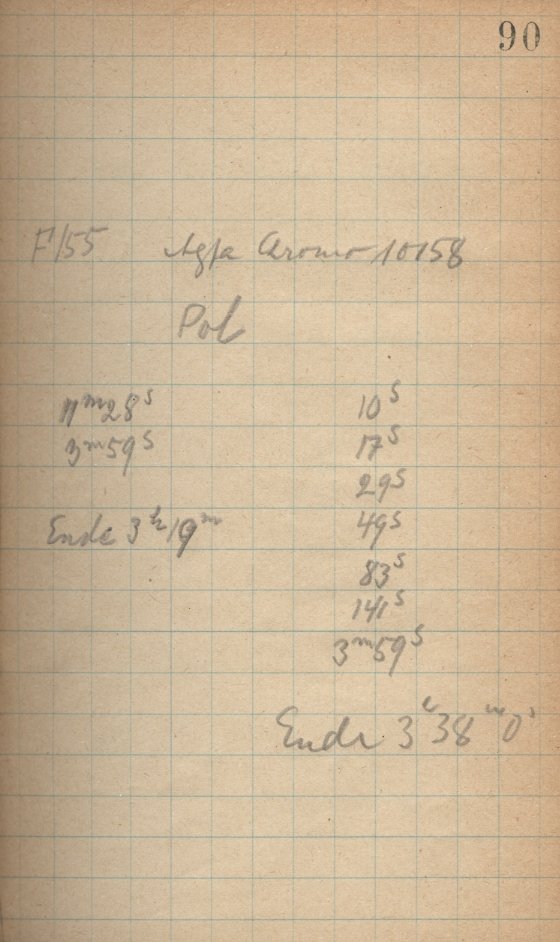 90
F/55 Agfa Chromo 10158
Pol
11ᵐ28ˢ
3ᵐ59ˢ
Ende 3ʰ19ᵐ
10ˢ
17ˢ
29ˢ
49ˢ
83ˢ
141ˢ
3ᵐ59ˢ
Ende 3ʰ38ᵐ0ˢ